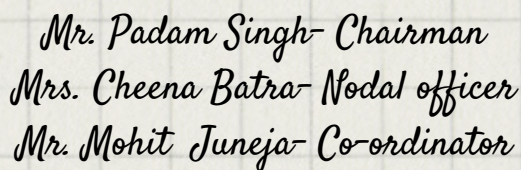 Mr. Padam Singh- Chairman
Mrs. Cheena Batra- Nodal officer
Mr. Mohit Juneja- Co-ordinator